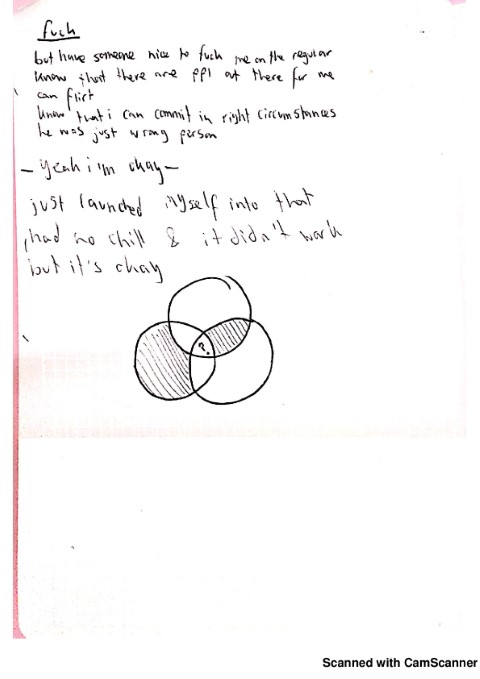 fuck
but have someone nice to fuck me on the regular
know that there are ppl out there for me
can flirt
know that i can commit in right circumstances
he was just wrong person
- yeah i'm okay -
just launched myself into that
, had no chill & it didn't work
but it's okay
?
Scanned with CamScanner